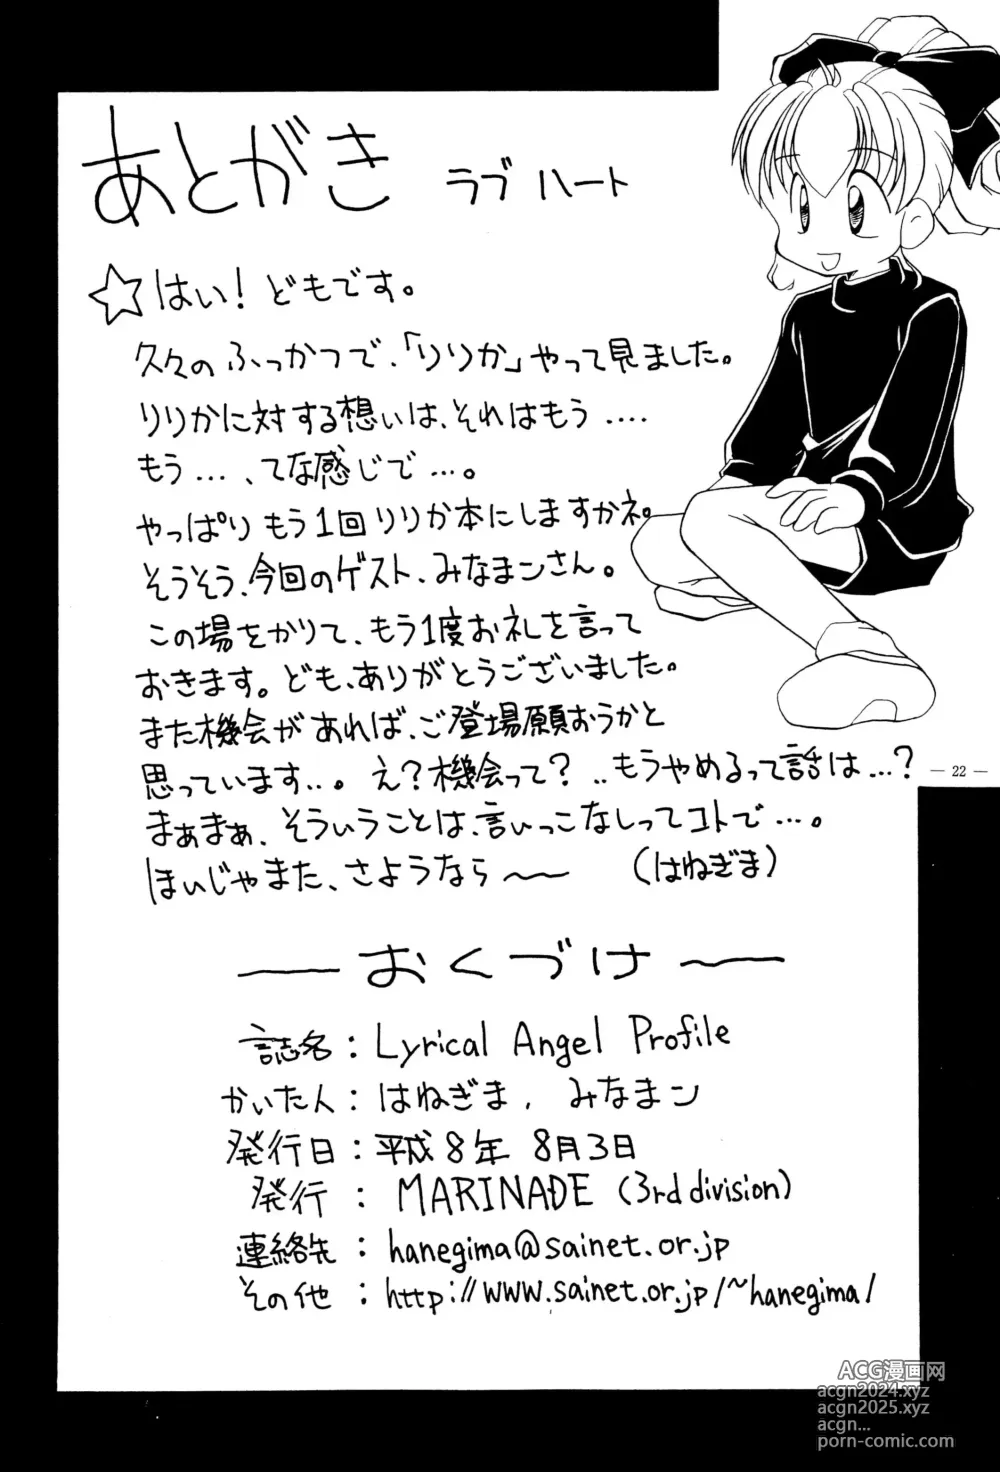 あとがき ラブ ハート
☆はい！どもです。
久々のふっかつで、「りりか」やって見ました。
りりかに対する想いは、それはもう ....
もう ...、てな感じで ...。
やっぱり もう1回 りりか本にしますかネ。
そうそう、今回のゲスト、みなまンさん。
この場をかりて、もう1度お礼を言って
おきます。ども、ありがとうございました。
また機会があれば、ご登場願おうかと
思っています...。え？機会って？ ..もうやめるって話は...？
まぁまぁ、そういうことは、言いっこなしってコトで ...。
ほいじゃまた、さようなら〜 （はねぎま）
— 22 —
〜おくづけ〜
誌名：Lyrical Angel Profile
かいた人：はねぎま, みなまン
発行日：平成8年 8月3日
発行：MARINADE (3rd division)
連絡先：hanegima@sainet.or.jp
その他：http://www.sainet.or.jp/~hanegima/
ACG漫画网
acgn2024.xyz
acgn2025.xyz
acgn...
porn-comic.com